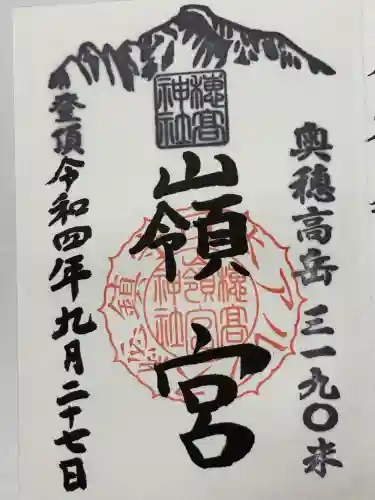 奥穂高岳 三一九〇米
穂高
神社
嶺宮
穂高
嶺宮
神社
登頂 令和四年九月二十七日